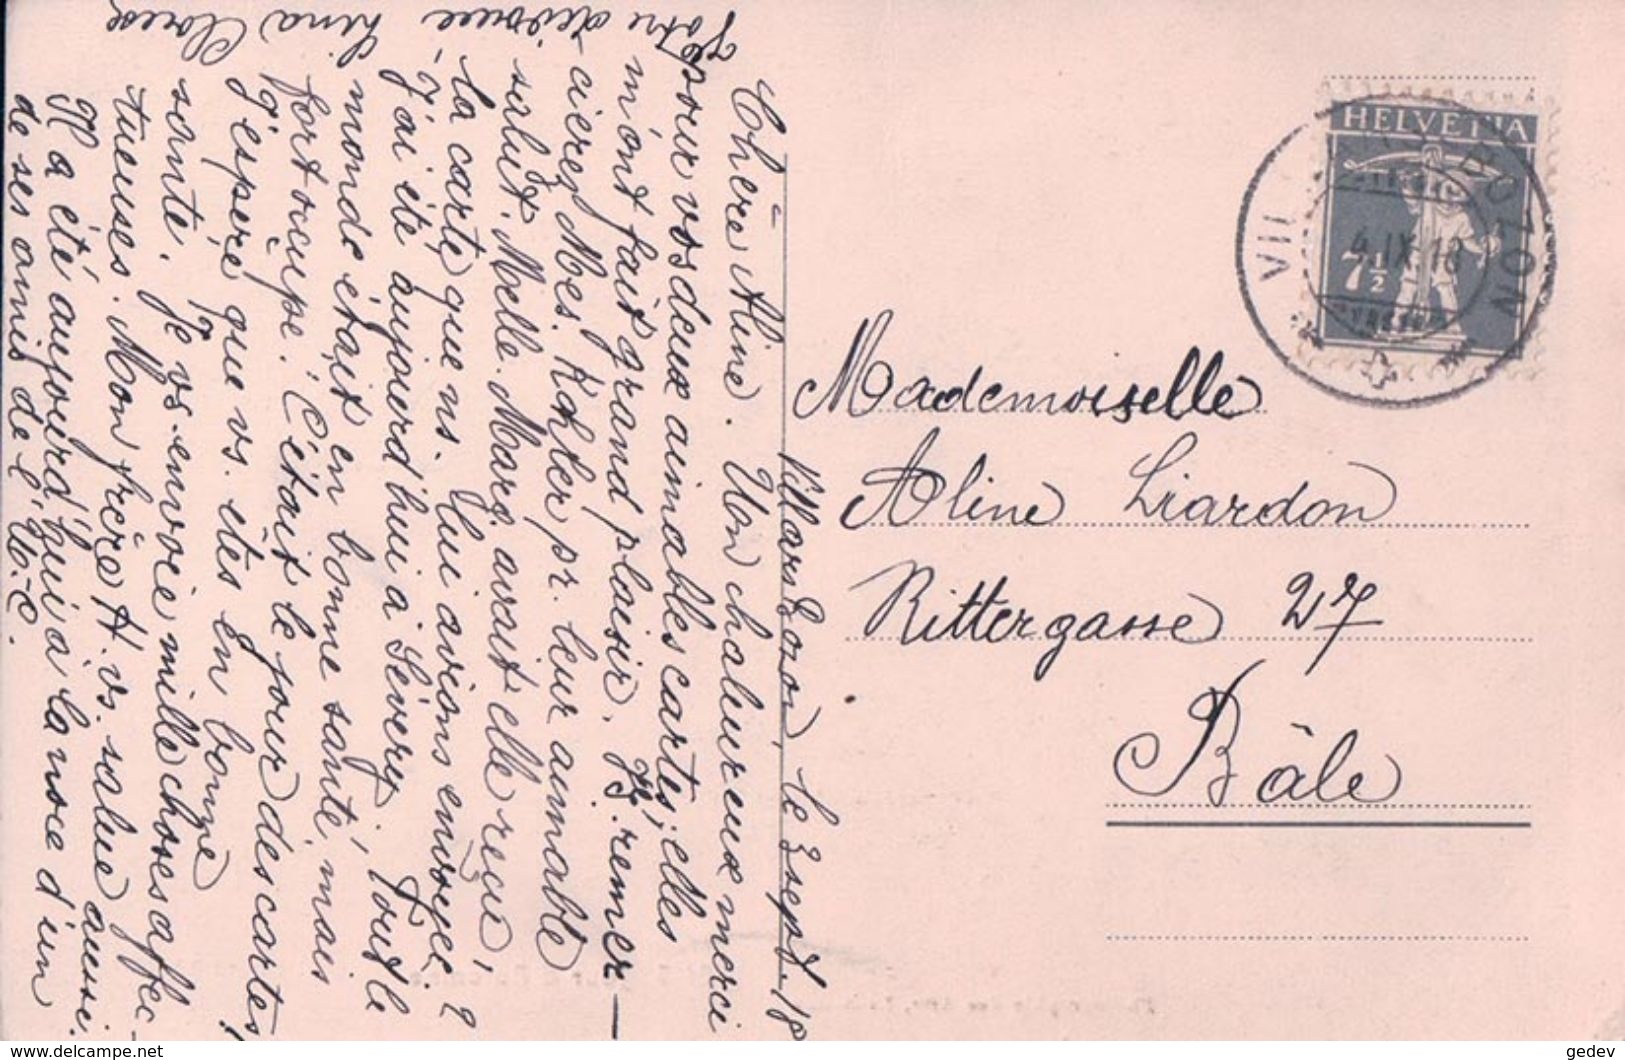 Villars Bozon, le 3 sept. 18
Chère Aline. Un chaleureux merci
pour vos deux aimables cartes; elles
m'ont fait grand plaisir. B. remer-
ciez Mes. Kohler pr. leur aimable
salut. Melle. Marg. avait elle reçu,
la carte que ns. lui avions envoyée?
- J'ai été aujourd'hui à Sévery. Tout le
monde était en bonne santé, mais
fort occupé. C'était le jour des cartes!
J'espère que vs. êtes en bonne
santé. Je vs. envoie mille choses affec-
tueuses. Mon frère H. vs. salue aussi.
Il a été aujourd'hui à la noce d'un
de ses amis de l'U.C.
Votre dévouée Lina
HELVETIA
7½
VIL BOZON
4.IX.18
Mademoiselle
Aline Liardon
Rittergasse 27
Bâle
delcampe.net
gedev